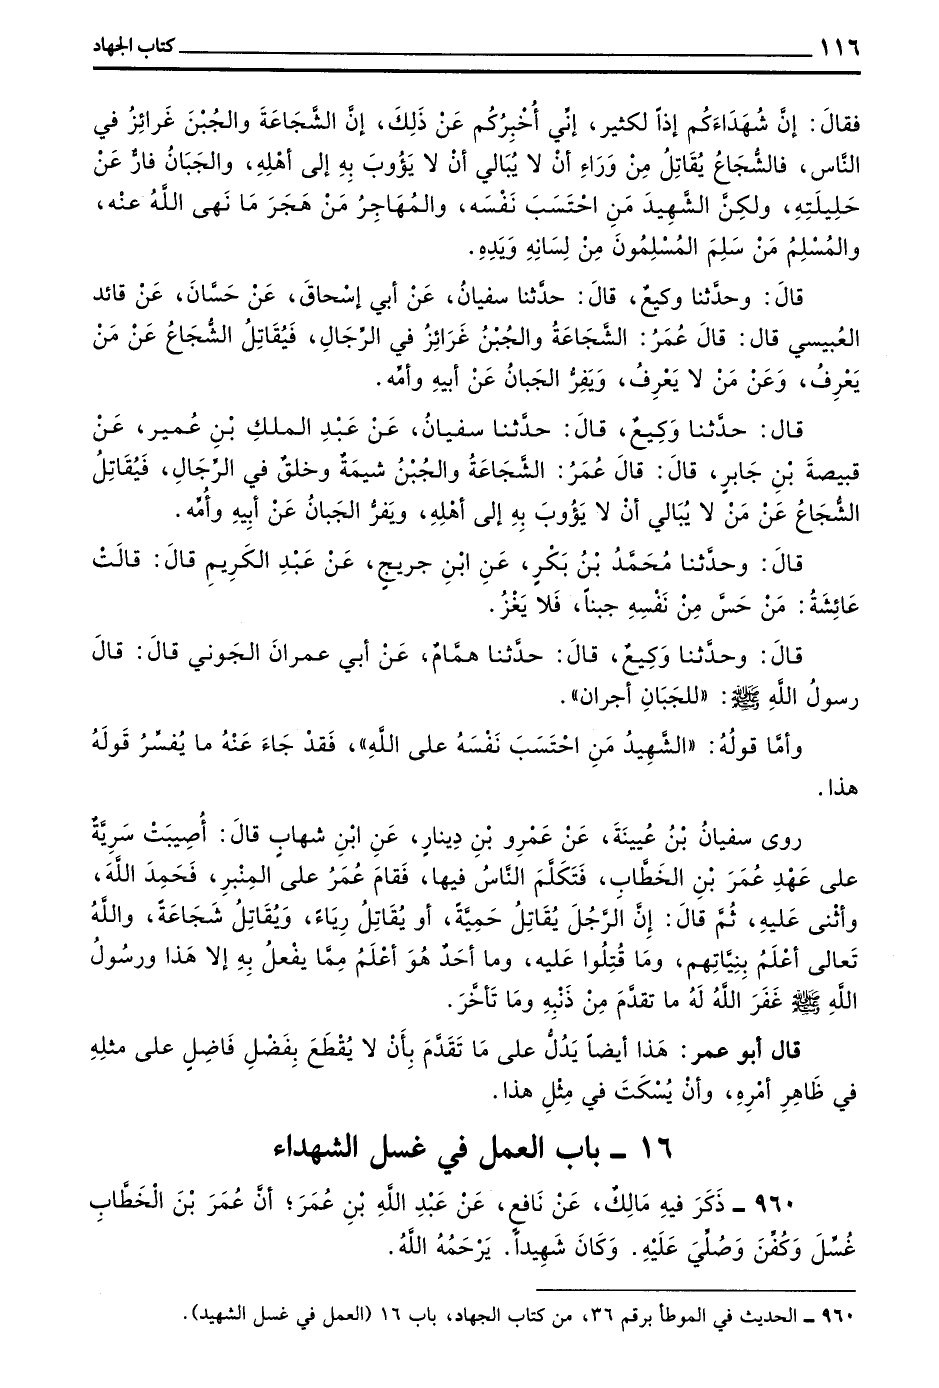 ١١٦ كتاب الجهاد
فقالَ: إنَّ شُهَدَاءَكُم إذاً لكثير، إنِّي أُخْبِرُكُم عَنْ ذَلِكَ، إنَّ الشَّجَاعَةَ والجُبْنَ غَرائِزُ في
النَّاس، فالشُّجَاعُ يُقَاتِلُ مِنْ وَرَاءِ أنْ لا يُبَالي أنْ لا يَؤُوبَ بِهِ إلى أهْلِهِ، والجَبَانُ فارٌّ عَنْ
حَلِيلَتِهِ، ولكِنَّ الشَّهِيدَ مَنِ احْتَسَبَ نَفْسَه، والمُهَاجِرُ مَنْ هَجَرَ مَا نَهى اللَّهُ عنْه،
والمُسْلِمُ مَنْ سَلِمَ المُسْلِمُونَ مِنْ لِسَانِهِ وَيَدِهِ.
قالَ: وحدَّثنا وكيعٌ، قالَ: حدَّثنا سفيانُ، عَنْ أبي إسْحاقَ، عَنْ حَسَّان، عَنْ قائد
العُبيسي قال: قالَ عُمَرُ: الشَّجاعَةُ والجُبْنُ غَرَائِزُ في الرِّجال، فَيُقَاتِلُ الشُّجاعُ عَنْ مَنْ
يَعْرِفُ، وَعَنْ مَنْ لا يَعْرِفُ، وَيَفِرُّ الجَبانُ عَنْ أبيه وأمِّه.
قال: حدَّثنا وَكِيعٌ، قالَ: حدَّثنا سفيانُ، عَنْ عَبْدِ الملكِ بْنِ عُمير، عَنْ
قبيصةَ بْنِ جَابرٍ، قالَ: قالَ عُمَرُ: الشَّجَاعَةُ والجُبْنُ شيمَةٌ وخلقٌ في الرِّجَالِ، فَيُقَاتِلُ
الشُّجَاعُ عَنْ مَنْ لا يُبَالي أنْ لا يَؤُوبَ بِهِ إلى أهْلِهِ، ويَفرُّ الجَبانُ عَنْ أبيهِ وأُمِّه.
قالَ: وحدَّثنا مُحَمَّدُ بْنُ بَكْرٍ، عَنِ ابْنِ جريجٍ، عَنْ عَبْدِ الكَرِيمِ قالَ: قالَتْ
عَائِشَةُ: مَنْ حَسَّ مِنْ نَفْسِهِ جبناً، فَلا يَغْزُ.
قالَ: وحدَّثنا وَكِيعٌ، قالَ: حدَّثنا همَّامٌ، عَنْ أبي عمرانَ الجَوني قالَ: قالَ
رسولُ اللَّهِ ﷺ: «للجَبَانِ أجران».
وأمَّا قولُهُ: «الشَّهِيدُ مَنِ احْتَسَبَ نَفْسَهُ على اللَّهِ»، فَقدْ جَاءَ عَنْهُ ما يُفسِّرُ قَولَهُ
هذا.
روى سفيانُ بْنُ عُيينَةَ، عَنْ عَمْرِو بْنِ دِينارٍ، عَنِ ابْنِ شهابٍ قالَ: أُصِيبَتْ سَرِيَّةٌ
على عَهْدِ عُمَرَ بْنِ الخَطَّاب، فَتَكَلَّمَ النَّاسُ فيها، فَقامَ عُمَرُ على المِنْبرِ، فَحَمِدَ اللَّهَ،
وأثْنى عَليهِ، ثُمَّ قالَ: إنَّ الرَّجُلَ يُقَاتِلُ حَمِيَّةً، أو يُقَاتِلُ رِيَاءً، وَيُقَاتِلُ شَجَاعَةً، واللَّهُ
تَعالى أعْلَمُ بِنِيَّاتِهم، ومَا قُتِلُوا عَليه، وما أحَدٌ هُوَ أعْلَمُ مِمَّا يفْعلُ بِهِ إلا هَذا ورسُولُ
اللَّهِ ﷺ غَفَرَ اللَّهُ لَهُ ما تقدَّمَ مِنْ ذَنْبِهِ ومَا تَأخَّرَ.
قال أبو عمر: هَذا أيضاً يَدُلُّ على مَا تَقَدَّمَ بِأَنْ لا يُقْطَعَ بِفَضْلِ فَاضِلٍ على مثلِهِ
في ظَاهِرِ أمْرِهِ، وأنْ يُسْكَتَ في مِثْلِ هذا.
١٦ ـ باب العمل في غسل الشهداء
٩٦٠ ـ ذَكَرَ فيهِ مَالِكٌ، عَنْ نَافِعٍ، عَنْ عَبْدِ اللَّهِ بْنِ عُمَرَ؛ أنَّ عُمَرَ بْنَ الْخَطَّابِ
غُسِّلَ وَكُفِّنَ وَصُلِّيَ عَلَيْهِ. وَكَانَ شَهِيداً. يَرْحَمُهُ اللَّهُ.
٩٦٠ ـ الحديث في الموطأ برقم ٣٦، من كتاب الجهاد، باب ١٦ (العمل في غسل الشهيد).